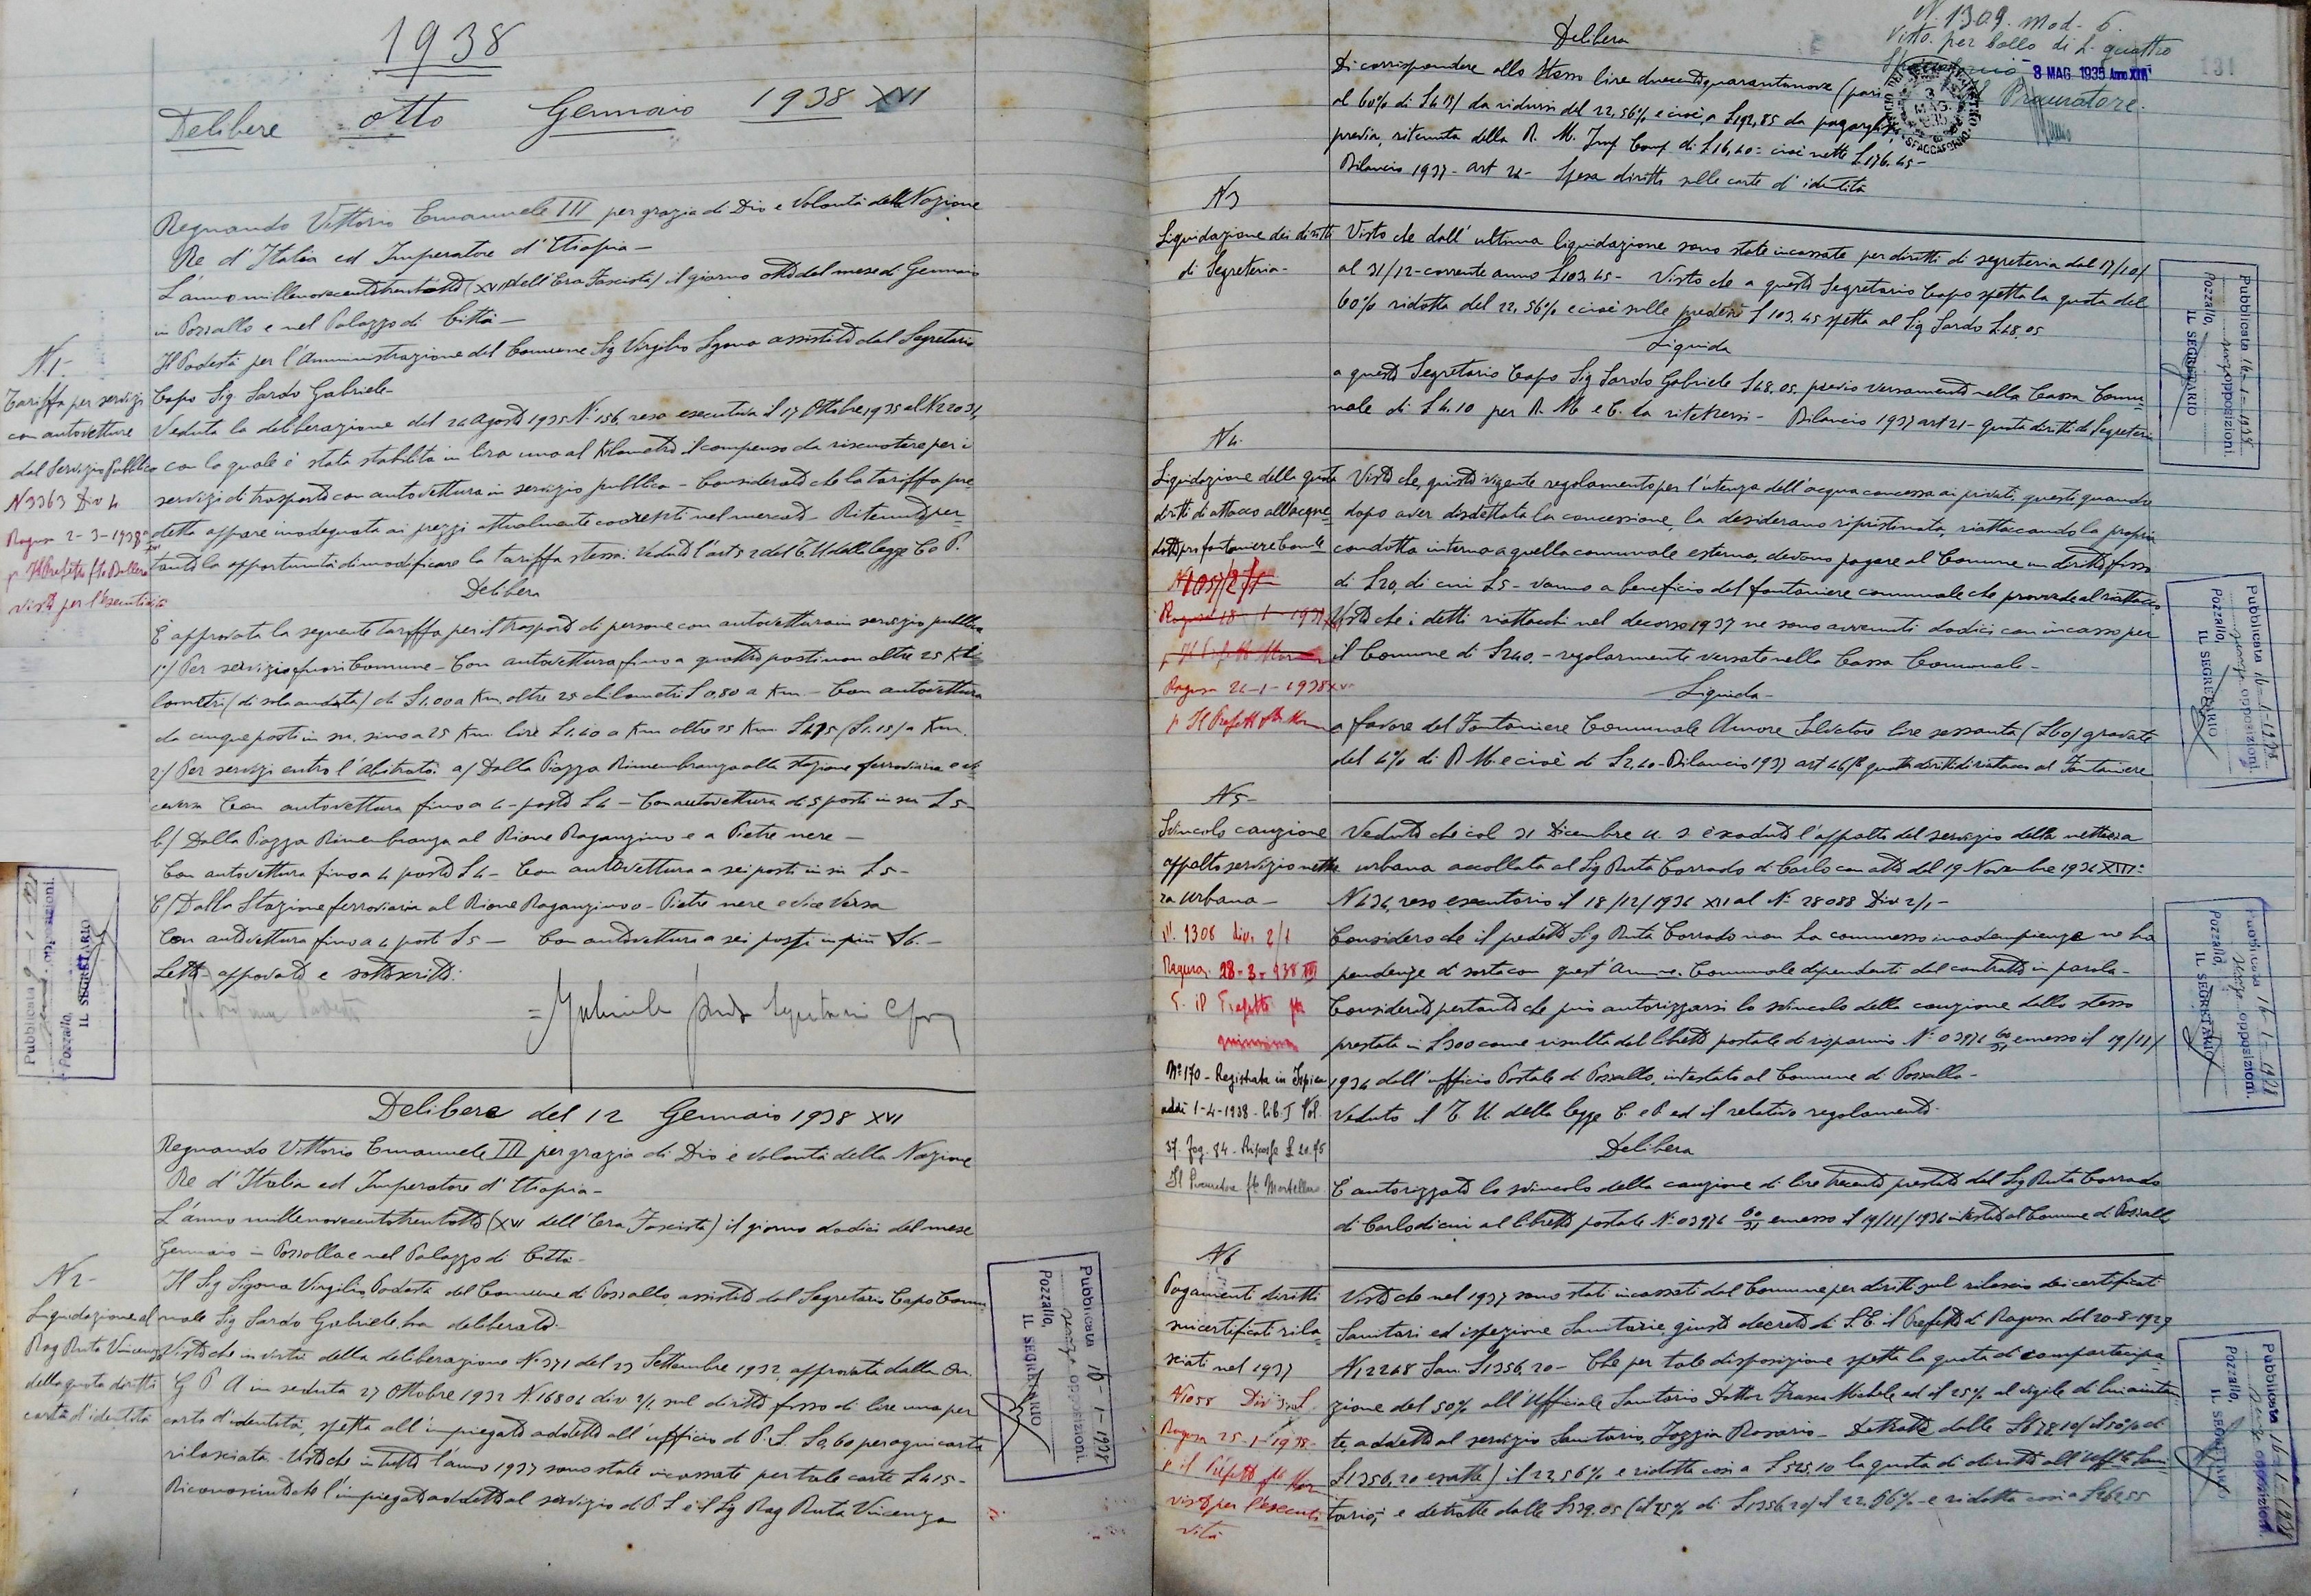 1938
Delibere otto Gennaio 1938 XVI
Regnando Vittorio Emanuele III per grazia di Dio e Volontà della Nazione
Re d'Italia ed Imperatore d'Etiopia -
L'anno millenovecentotrentotto (XVI dell'Era Fascista) il giorno otto del mese di Gennaio
in Pozzallo e nel Palazzo di Città -
N 1 -
Tariffa per servizi
con autovetture
dal Servizio Pubblico
N 3363 Div 4
Ragusa 2-3-1938
p Il Prefetto fto
visto per l'esecutività
Il Podestà per l'Amministrazione del Comune Sig Virgilio Sigona assistito dal Segretario
Capo Sig. Sardo Gabriele -
Veduta la deliberazione del 24 Agosto 1935 N. 156, resa esecutiva il 17 Ottobre 1935 al N
con la quale è stata stabilita in lira una al Kilometro il compenso da riscuotere per i
servizi di trasporto con autovettura in servizio pubblico - Considerato che la tariffa pre-
detta appare inadeguata ai prezzi attualmente correnti nel mercato - Ritenuto per-
tanto la opportunità di modificare la tariffa stessa. Veduto l'art 52 del T. U della legge C e P.
Delibera
È approvata la seguente tariffa per il trasporto di persone con autovettura in servizio pubblico
1°/ Per servizio fuori Comune - Con autovettura fino a quattro posti non oltre 25 Ki-
lometri (di sola andata) di £ 1.00 a Km, oltre 25 chilometri £ 0,80 a Km. - Con autovettura
da cinque posti in su, sino a 25 Km. lire £ 1.40 a Km oltre 25 Km. (£ 1.15) a Km.
2°/ Per servizi entro l'abitato: a/ Dalla Piazza Rimembranza alla stazione ferroviaria e vi-
ceversa Con autovettura fino a 4 - posti £ 4 - Con autovettura di 5 posti in su £ 5 -
b/ Dalla Piazza Rimembranza al Rione Raganzino e a Pietre nere -
Con autovettura fino a 4 posti £ 4 - Con autovettura a sei posti in su £ 5 -
C/ Dalla Stazione ferroviaria al Rione Raganzino o - Pietre nere e vice Versa
Con autovettura fino a 4 posti £ 5 - Con autovettura a sei posti in più £ 6. -
Letto - approvato e sottoscritto:
Pubblicata 9-1-
senza opposizioni.
Pozzallo,
IL SEGRETARIO
Delibere del 12 Gennaio 1938 XVI
Regnando Vittorio Emanuele III per grazia di Dio e volontà della Nazione
Re d'Italia ed Imperatore d'Etiopia -
L'anno millenovecentotrentotto (XVI dell'Era Fascista) il giorno dodici del mese
Gennaio in Pozzallo e nel Palazzo di Città -
N 2 -
Liquidazione al
Rag Ruta Vincenzo
della quota diritti
carta d'identità
Il Sig Sigona Virgilio Podestà del Comune di Pozzallo, assistito dal Segretario Capo Comu-
nale Sig Sardo Gabriele, ha deliberato -
Visto che in virtù della deliberazione N. 371 del 23 Settembre 1932, approvata dalla On.
G P A in seduta 27 Ottobre 1932 N. 16804 div 2/1 sul diritto fisso di lire una per
carta d'identità, spetta all'impiegato addetto all'ufficio di P. S. £ 0,60 per ogni carta
rilasciata. Visto che in tutto l'anno 1937 sono state incassate per tale carte £ 415 -
Riconosciuto che l'impiegato addetto al servizio di P S è il Sig Rag Ruta Vincenzo
Pubblicata 16-1-1938
senza opposizioni.
Pozzallo,
IL SEGRETARIO
N. 1309. mod. 6.
Visto per bollo di L. quattro
8 MAG. 1935 Anno XIII
131
Procuratore.
Delibera
Di corrispondere allo stesso lire duecentoquarantanove (pari
al 60% di £ 415/ da ridursi del 22,56% e cioè, a £ 192,85 da pagargli,
previa, ritenuta della R. M. Imp Comp di £ 16,40 = cioè nette £ 176.45 -
Bilancio 1937 - art 24 - Spesa diritti sulle carte d'identità
N 3
Liquidazione dei diritti
di Segreteria -
Visto che dall'ultima liquidazione sono state incassate per diritti di segreteria dal 17/10/
al 31/12 - corrente anno £ 103.45 - Visto che a questo Segretario Capo spetta la quota del
60% ridotta del 22,56% e cioè sulle predette £ 103.45 spetta al Sig Sardo £ 48.05
Liquida
a questo Segretario Capo Sig Sardo Gabriele £ 48.05, previo versamento nella Cassa Comu-
nale di £ 4.10 per R. M e C. da rifondersi - Bilancio 1937 art 21 - quota diritti di Segreteria
Pubblicata 16-1-1938
senza opposizioni
Pozzallo,
IL SEGRETARIO
N 4
Liquidazione della quota
diritti di attacco all'acque-
dotto pro fontaniere Com.le
N 1057/2
Ragusa 18-1-1938
Ragusa 24-1-1938 XVI
p Il Prefetto fto
Visto che, giusto vigente regolamento per l'utenza dell'acqua concessa ai privati, questi quando
dopo aver disdettata la concessione, la desiderano ripristinata, riattaccando la propria
condotta interna a quella comunale esterna, devono pagare al Comune un diritto fisso
di £ 20, di cui £ 5 - vanno a beneficio del fontaniere comunale che provvede al riattacco
Visto che i detti riattacchi nel decorso 1937 ne sono avvenuti dodici con incasso per
il Comune di £ 240. - regolarmente versate nella Cassa Comunale -
Liquida -
a favore del Fontaniere Comunale Amore Salvatore lire sessanta (£ 60/ gravate
del 4% di R M. e cioè di £ 2,40 - Bilancio 1937 art 46/B quota diritti di riattacco al Fontaniere
Pubblicata 16-1-1938
senza opposizioni.
Pozzallo,
IL SEGRETARIO
N 5 -
Svincolo cauzione
appalto servizio nettez-
za urbana -
N. 1306 div. 2/1
Ragusa. 28-3-938 XVI
p. il Prefetto fto
N° 170 - Registrata in Ispica
addì 1-4-1938 - Lib. I Vol.
37. Fog. 84 - Riscosse £ 20.75
Il Procuratore fto Martellino
Veduto che col 31 Dicembre u. s è scaduto l'appalto del servizio della nettezza
urbana accollata al Sig Ruta Corrado di Carlo con atto del 19 Novembre 1934 XIII°
N 434, reso esecutorio il 18/12/1934 XIII al N° 28088 Div 2/1 -
Considero che il predetto Sig Ruta Corrado non ha commesso inadempienze ne ha
pendenze di sorta con quest'Amm.ne. Comunale dipendenti dal contratto in parola -
Considerato pertanto che può autorizzarsi lo svincolo della cauzione dallo stesso
prestata in £ 300 come risulta dal libretto postale di risparmio N° 03974 60/31 emesso il 19/11/
1934 dall'ufficio Postale di Pozzallo, intestato al Comune di Pozzallo -
Veduto il T. U. della legge C. e P. ed il relativo regolamento -
Delibera
È autorizzato lo svincolo della cauzione di lire trecento prestata dal Sig Ruta Corrado
di Carlo di cui al libretto postale N° 03974 60/31 emesso il 19/11/1934 intestato al Comune di Pozzallo
Pubblicata 16-1-1938
senza opposizioni.
Pozzallo,
IL SEGRETARIO
N 6
Pagamenti diritti
sui certificati rila-
sciati nel 1937
N 1055 Div
Ragusa 25-1-1938 -
p il Prefetto fto
visto per l'esecuti-
vità
Visto che nel 1937 sono stati incassati dal Comune per diritti sul rilascio dei certificati
Sanitari ed ispezione Sanitarie, giusto decreto di S. E. il Prefetto di Ragusa del 20-8-1929
N 12268 San. £ 1356,20 - Che per tale disposizione spetta la quota di compartecipa-
zione del 50% all'Ufficiale Sanitario Dottor Frasca Michele ed il 25% al vigile
te, addetto al servizio Sanitario, Rosario - Detratto dalle £ 678.10/ il 50% di
£ 1356,20 esatte) il 22,56% e ridotta così a £ 525,10 la quota di diritto all'Uff.le Sani-
tario; e detratte dalle £ 339.05 (il 25% di £ 1356.20) il 22,56% e ridotta così a £ 262,55
Pubblicata 16-1-1938
senza opposizioni.
Pozzallo,
IL SEGRETARIO